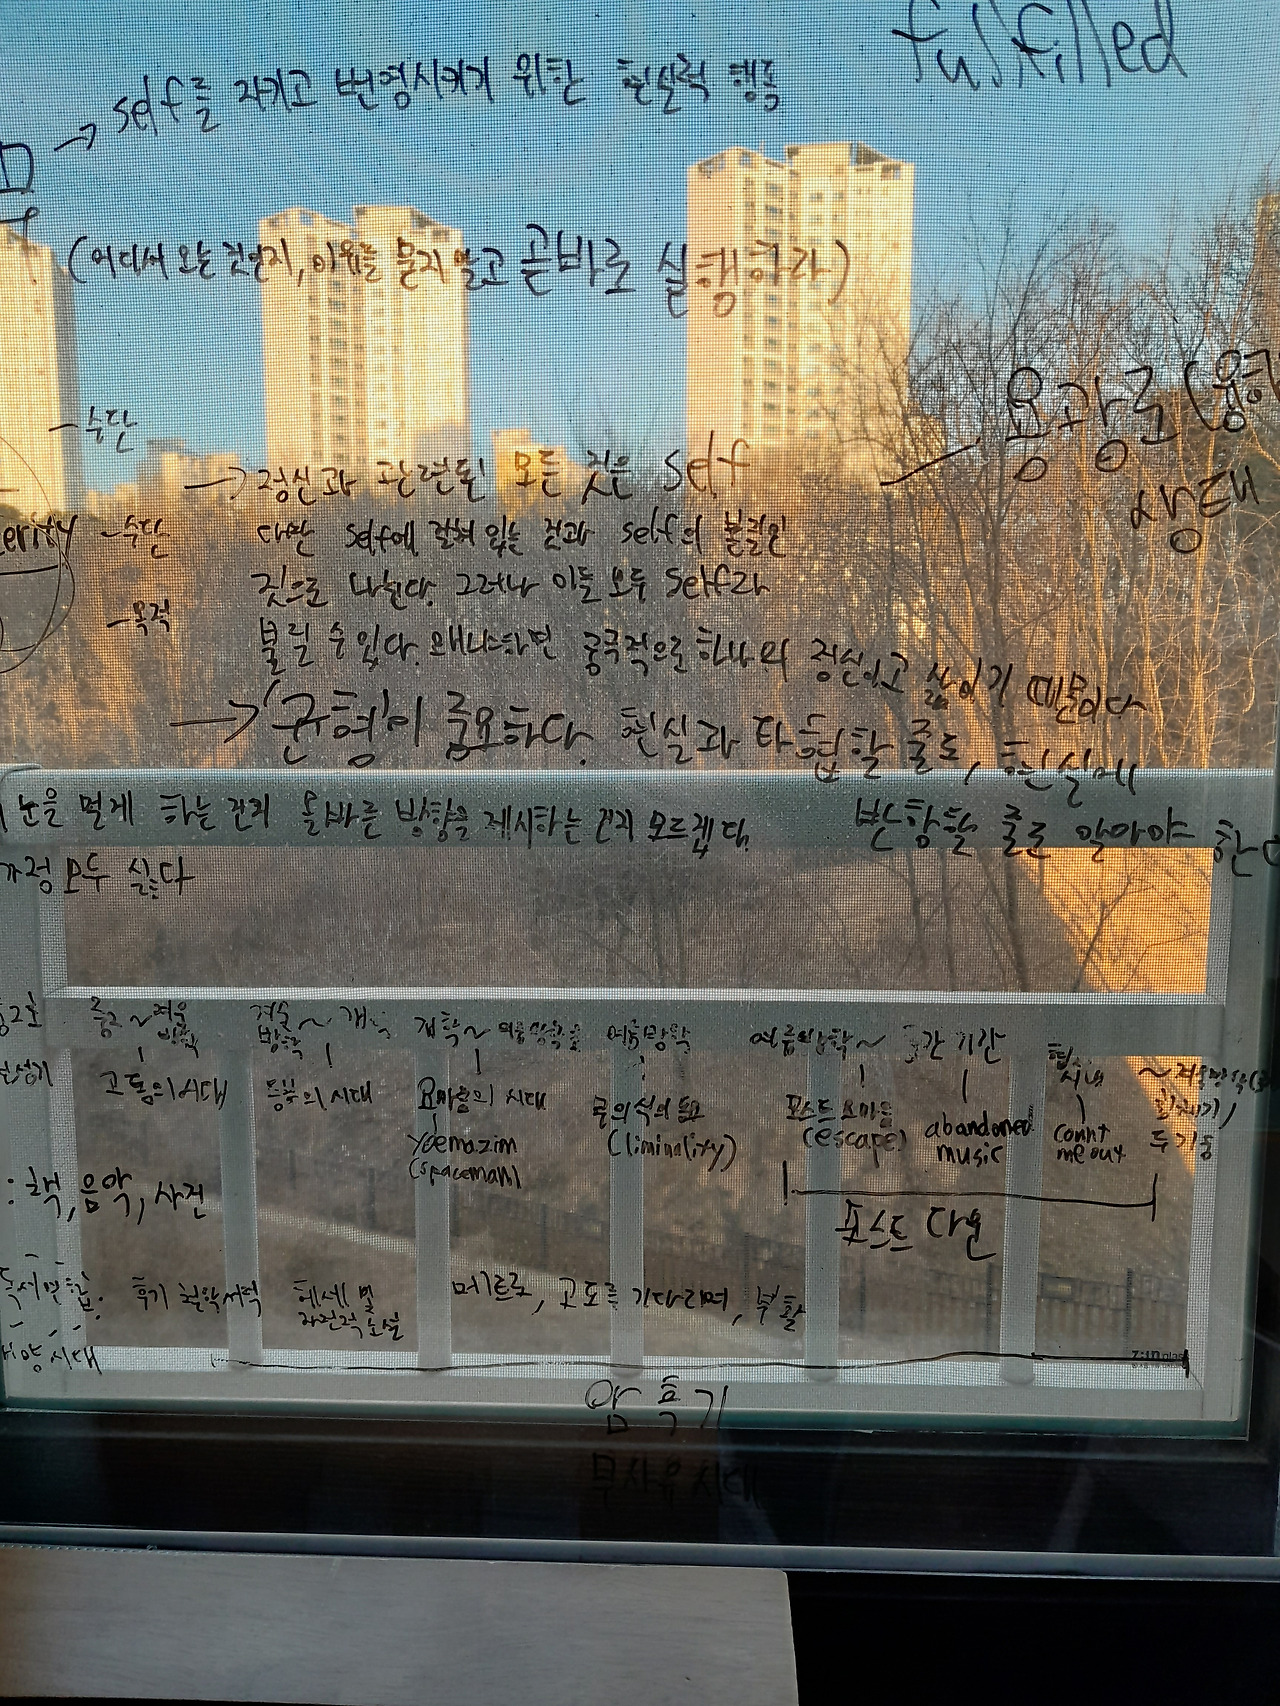 fulfilled
→ self를 지키고 번영시키기 위한 현실적 행동
(어디서 오는 것인지, 이유를 묻지 말고 곧바로 실행하라)
용광로 (융합
상태
- 수단
→ 정신과 관련된 모든 것은 self
erity - 수단
다만 self에 걸쳐 있는 것과 self의 본질인
것으로 나뉜다. 그러나 이들 모두 self라
- 목적
불릴 수 있다. 왜냐하면 궁극적으로 하나의 정신이고 삶이기 때문이다
→ '균형'이 중요하다. 현실과 타협할 줄도, 현실에
반항할 줄도 알아야 한다
눈을 멀게 하는 건지 올바른 방향을 제시하는 건지 모르겠다.
모두 싫다
중2 ~ 겨울방학
겨울방학 ~ 개
개학 ~ 여름방학
여름방학
여름방학 ~ 중간 기간
고통의 시대
동부의 시대
요마음의 시대
yoemazim
(spaceman)
(liminality)
포스트 요마음
(escape)
abandoned
music
count
me out
포스트 다운
: 책, 음악, 사건
후기 철학서적
헤세 및
자전적 소설
메트로, 고도를 기다리며, 부활
시대
암흑기
부자유 시대